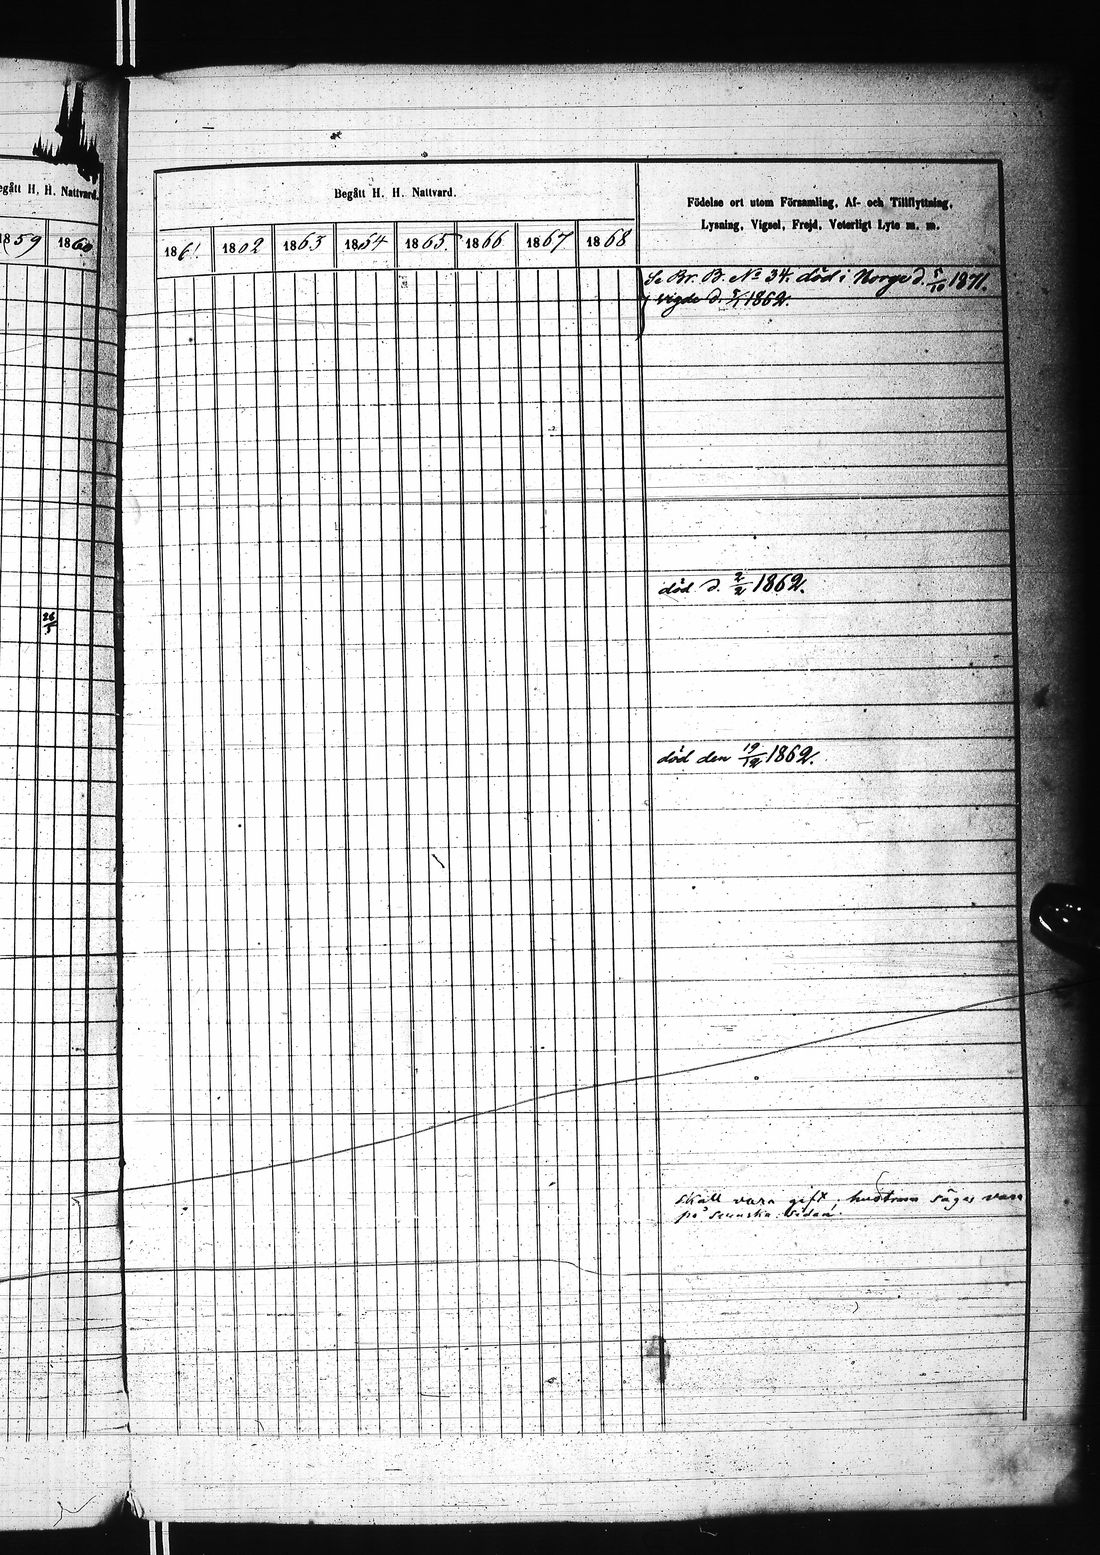 egått H. H. Nattvard.
1859 1860
26/3
Begått H. H. Nattvard.
Födelse ort utom Församling, Af- och Tillflyttning,
Lysning, Vigsel, Frejd, Vaterligt Lyte m. m.
1861. 1862 1863 1864 1865 1866 1867 1868
Se Br. B. No 34. död i Norge d. 5/10 1871.
vigde d. 1862.
död d. 2/2 1862.
död den 19/12 1862.
skall vara gift. hustrun säges vara
på svenska sidan.